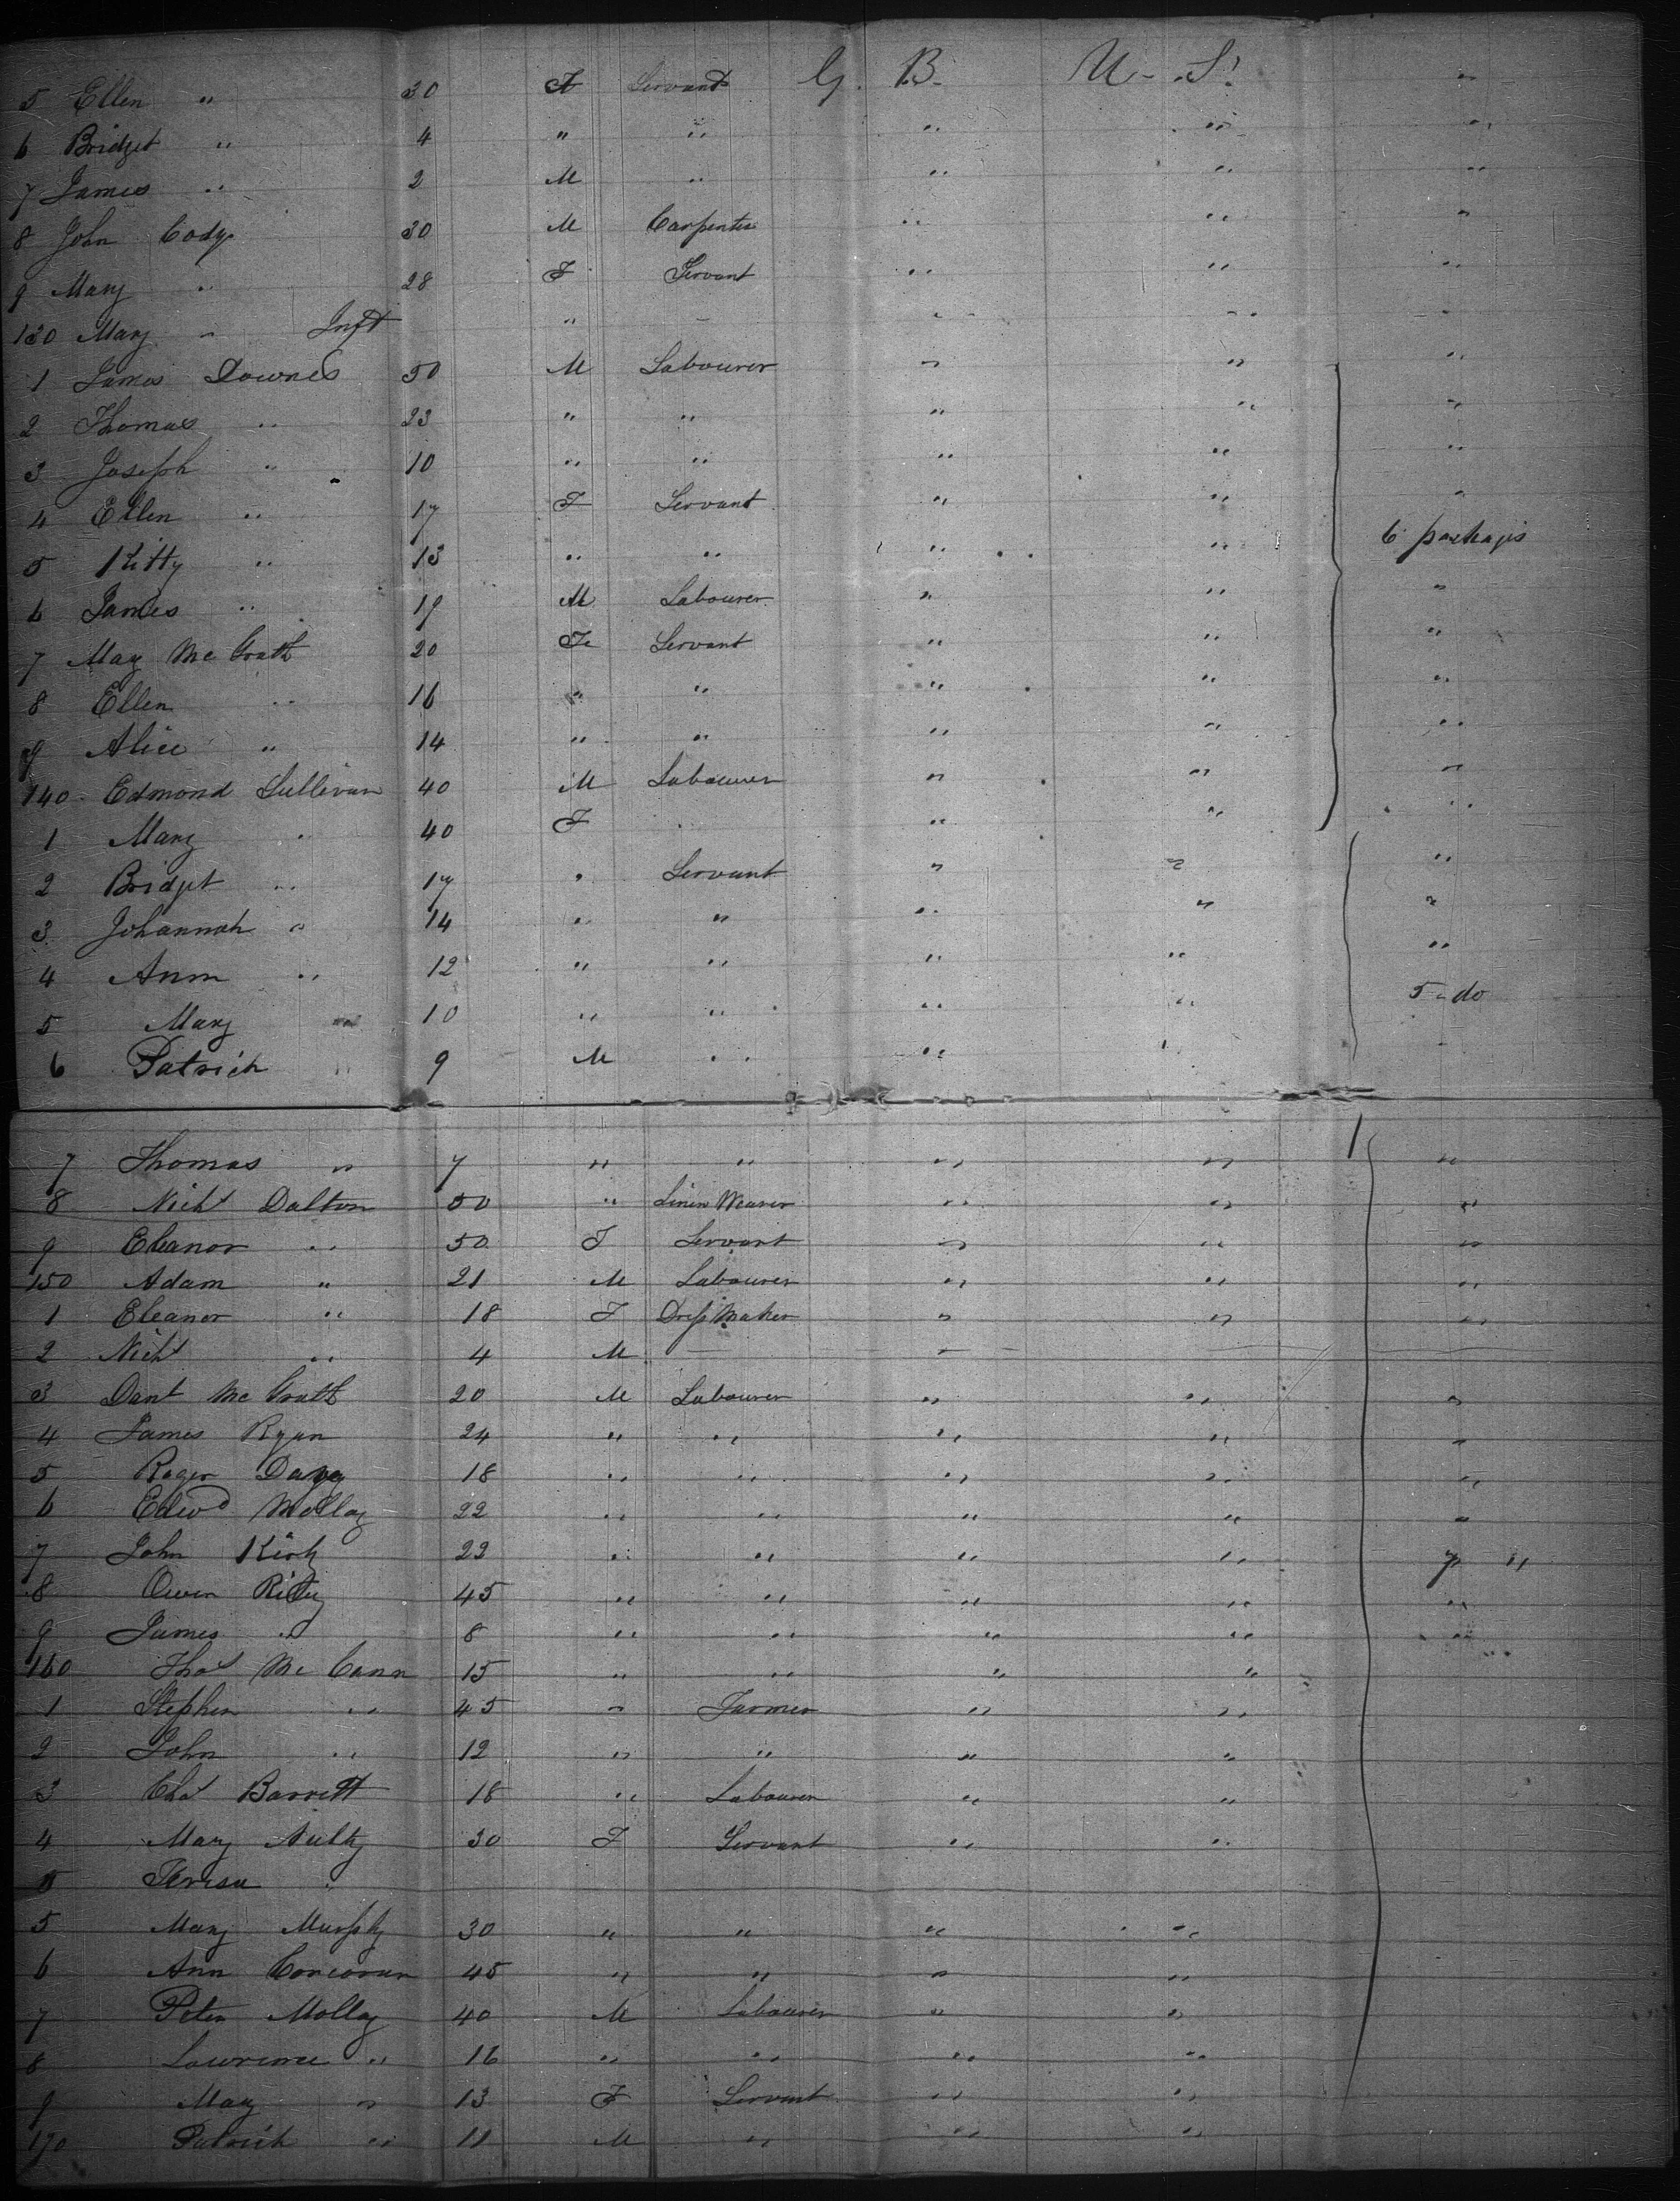 5 Ellen " 30 F Servant G. B. U. S. "
6 Bridget " 4 " " " " "
7 James " 2 M " " " "
8 John Cody 30 M Carpenter " " "
9 Mary " 28 F Servant " " "
130 Mary " Inft " - " " "
1 James Downes 50 M Labourer " " "
2 Thomas " 23 " " " " "
3 Joseph " 10 " " " " "
4 Ellen " 17 F Servant " " "
5 Kitty " 13 " " " " 6 packages
6 James " 19 M Labourer " " "
7 May Mc Grath 20 Fe Servant " " "
8 Ellen " 16 " " " " "
9 Alice " 14 " " " " "
140 Edmond Sullivan 40 M Labourer " " "
1 Mary " 40 F " " " "
2 Bridget " 17 " Servant " " "
3 Johannah " 14 " " " " "
4 Ann " 12 " " " " "
5 Mary " 10 " " " " 5 do
6 Patrick " 9 M " " "
7 Thomas " 7 " " " " "
8 Nichs Dalton 50 " Linen Weaver " " "
9 Eleanor " 50 F Servant " " "
150 Adam " 21 M Labourer " " "
1 Eleanor " 18 F Dress Maker " " "
2 Nichs " 4 M - -
3 Danl Mc Grath 20 M Labourer " " "
4 James Ryan 24 " " " " "
5 Roger 18 " " " " "
6 Edwd Molloy 22 " " " " "
7 John Kirk 22 " " " " 7 "
8 Owen 45 " " " " "
9 James " 8 " " " " "
160 Thos Mc Cann 15 " " " "
1 Stephen " 45 " Farmer " "
2 John " 12 " " " "
3 Chas Barrett 18 " Labourer " "
4 Mary 30 F Servant " "
5 Teresa "
5 Mary Murphy 30 " " " "
6 Ann Corcoran 45 " " " "
7 Peter Molloy 40 M Labourer " "
8 Lawrence " 16 " " " "
9 May " 13 F Servant " "
170 Patrick " 11 M " " "